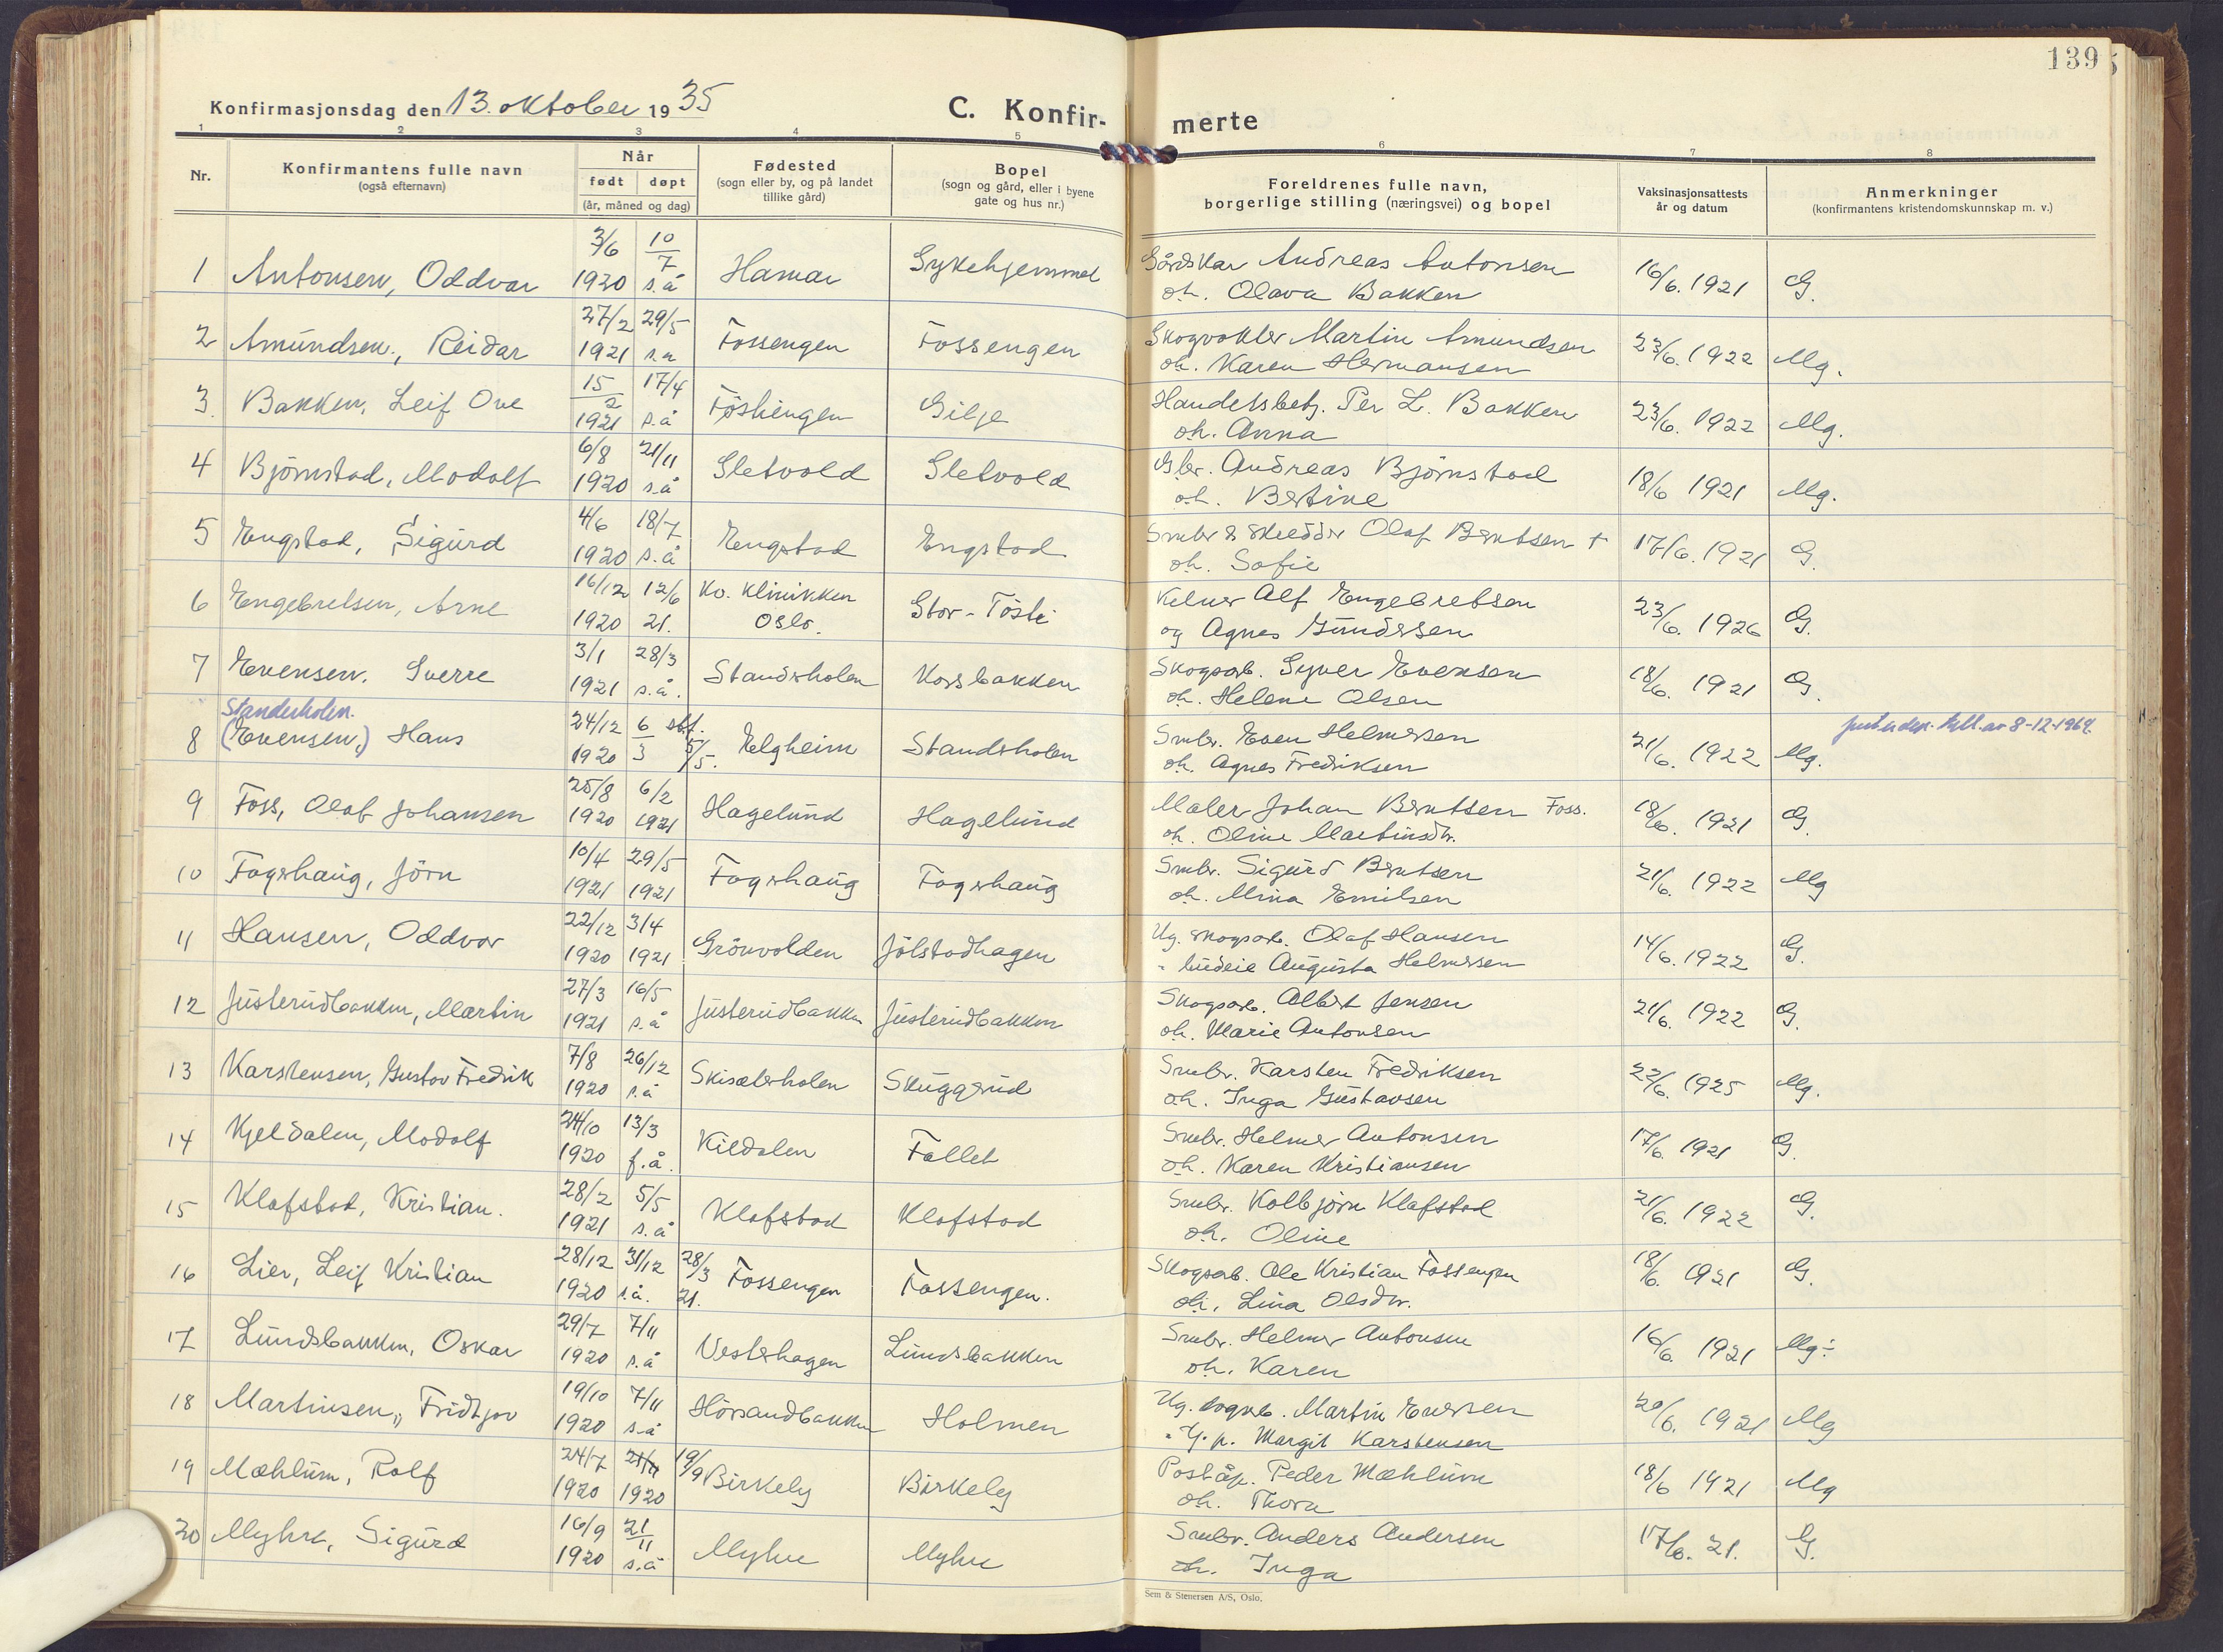 139
Konfirmasjonsdag den 13. oktober 1935
C. Konfir-
merte
1 2 3 4 5 6 7 8
Nr.
Konfirmantens fulle navn
(også efternavn)
Når
født døpt
(år, måned og dag)
Fødested
(sogn eller by, og på landet
tillike gård)
Bopel
(sogn og gård, eller i byene
gate og hus nr.)
Foreldrenes fulle navn,
borgerlige stilling (næringsvei) og bopel
Vaksinasjonsattests
år og datum
Anmerkninger
(konfirmantens kristendomskunnskap m. v.)
1 Antonsen, Oddvar 3/6 1920 10/7 s.å Hamar Sykehjemmet Gårdskar Andreas Antonsen 16/6. 1921 G.
oh. Olava Bakken
2 Amundsen, Reidar 27/2 1921 29/5 s.a Fossengen Fossengen Skogvokter Martin Amundsen 23/6. 1922 Mg.
oh. Karen Hermansen
3. Bakken, Leif Ove 15/2 1921 17/4 s.å Töstiengen Gilje Handelsbetj. Per L. Bakken 23/6. 1922 Mg.
oh. Anna
4 Björnstad, Modolf 6/8 1920 21/11 s.å Sletvold Sletvold Gbr. Andreas Björnstad 18/6 1921 Mg.
oh. Bertine
5 Engstad, Sigurd 4/6 1920 18/7 s.å Engstad Engstad Smbr & skredder Olaf Berntsen + 17/6. 1921 G.
oh. Sofie
6 Engebretsen, Arne 16/12 1920 12/6 21. Kv. klinikken Oslo. Stor-Tösti Kelner Alf Engebretsen 23/6. 1926 G.
og Agnes Gundersen
7 Evensen. Sverre 3/1 1921 28/3 s.å. Standerholen Korsbakken Skogsarb. Syver Evensen 18/6. 1921 G.
oh. Helene Olsen
Standerholen.
8 (Evensen,) Hans 24/12 1920 6/3 stf. 5/5. Elgheim Standerholen Smbr. Even Helmersen 21/6. 1922 Mg.
oh. Agnes Fredriksen
8-12-1964.
9 Foss, Olaf Johansen 25/8 1920 6/2 1921 Hagelund Hagelund Maler Johan Berntsen Foss. 18/6. 1921 G.
oh. Oline Martinsdtr.
10 Fagerhaug, Jörn 10/4 1921 29/5 1921 Fagerhaug Fagerhaug Smbr. Sigurd Berntsen 21/6. 1922 Mg
oh. Mina Emilsen
11 Hansen, Oddvar 22/12 1920 3/4 1921 Grönvolden Jölstadhagen Ug. skogsarb. Olaf Hansen 14/6. 1922 G.
" budeie Augusta Helmersen
12 Justerudbakken, Martin 27/3 1921 16/5 s.å Justerudbakken Justerudbakken Skogsarb. Albert Jensen 21/6. 1922 G.
oh. Marie Antonsen
13 Karstensen, Gustav Fredrik 7/8 1920 26/12 s.å Skisæterholen Skuggerud Smbr. Karsten Fredriksen 22/6. 1925 Mg.
oh. Inga Gustavsen
14 Kjeldalen, Modolf 24/10 1920 13/3 f.å. Kildalen Fallet Smbr. Helmer Antonsen 17/6. 1921 G.
oh. Karen Kristiansen
15 Klafstad, Kristian. 28/2 1921 5/5 s.å Klafstad Klafstad Smbr. Kolbjörn Klafstad 21/6. 1922 G.
oh. Oline
16 Lier, Leif Kristian 28/12 1920 31/12 s.å. 28/3 21. Fossengen Fossengen. Skogsarb. Ole Kristian Fossengen 18/6. 1921 G.
oh. Lina Olsdtr.
17 Lundsbakken, Oskar 29/7 1920 7/11 s.å Vesterhagen Lundsbakken Smbr. Helmer Antonsen 16/6. 1921 Mg÷
oh. Karen
18 Martinsen, Fridtjov 19/10 1920 7/11 s.å Hörsandbakken Holmen Ug. Martin Evensen 20/6. 1921 Mg
" Margit Karstensen
19 Mæhlum, Rolf 24/7 1920 21/11 1920 19/9 Birkely Birkely Poståp. Peder Mæhlum 18/6 1921 Mg
oh. Thora
20 Myhre, Sigurd 16/9 1920 21/11 s.å Myhre Myhre Smbr. Anders Andersen 17/6. 21. G.
oh. Inga
Sem & Stenersen A/S, Oslo.